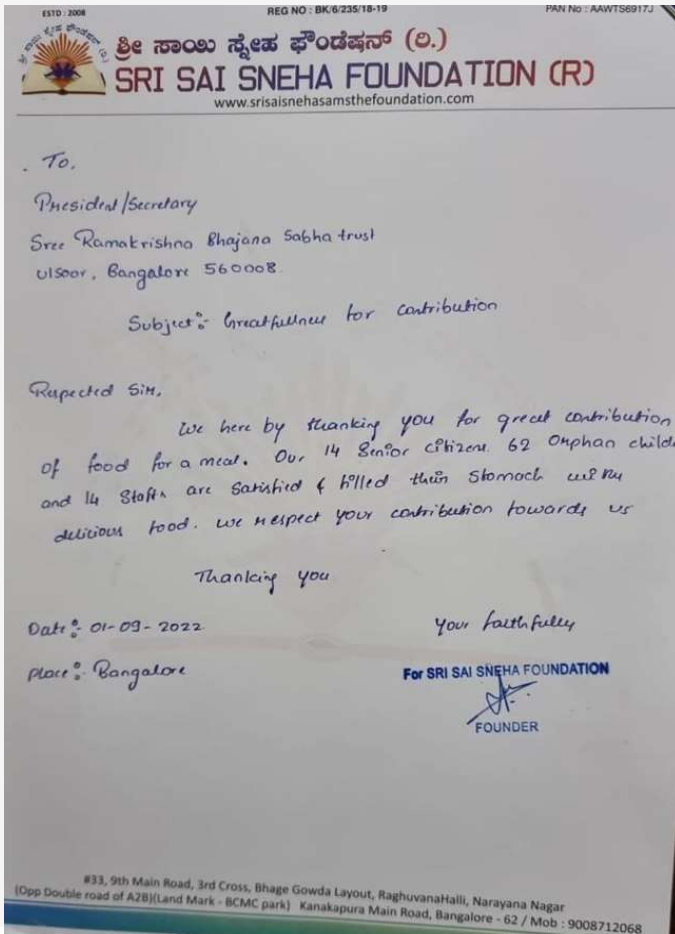 ESTD : 2008
REG NO : BK/6/235/18-19
PAN No : AAWTS6917J
ಶ್ರೀ ಸಾಯಿ ಸ್ನೇಹ ಫೌಂಡೆಷನ್ (ರಿ.)
SRI SAI SNEHA FOUNDATION (R)
www.srisaisnehasamsthefoundation.com
To,
President/Secretary
Sree Ramakrishna Bhajana Sabha trust
Ulsoor, Bangalore 560008
Subject:- Greatfullness for contribution
Respected Sir,
We here by thanking you for great contribution
of food for a meal. Our 14 Senior Citizens 62 Orphan child
and 14 Staffs are satisfied & filled their Stomach with
delicious food. we respect your contribution towards us
Thanking you
Date:- 01-09-2022
Your faithfully
Place:- Bangalore
For SRI SAI SNEHA FOUNDATION
FOUNDER
#33, 9th Main Road, 3rd Cross, Bhage Gowda Layout, RaghuvanaHalli, Narayana Nagar
(Opp Double road of A2B)(Land Mark - BCMC park) Kanakapura Main Road, Bangalore - 62 / Mob : 9008712068